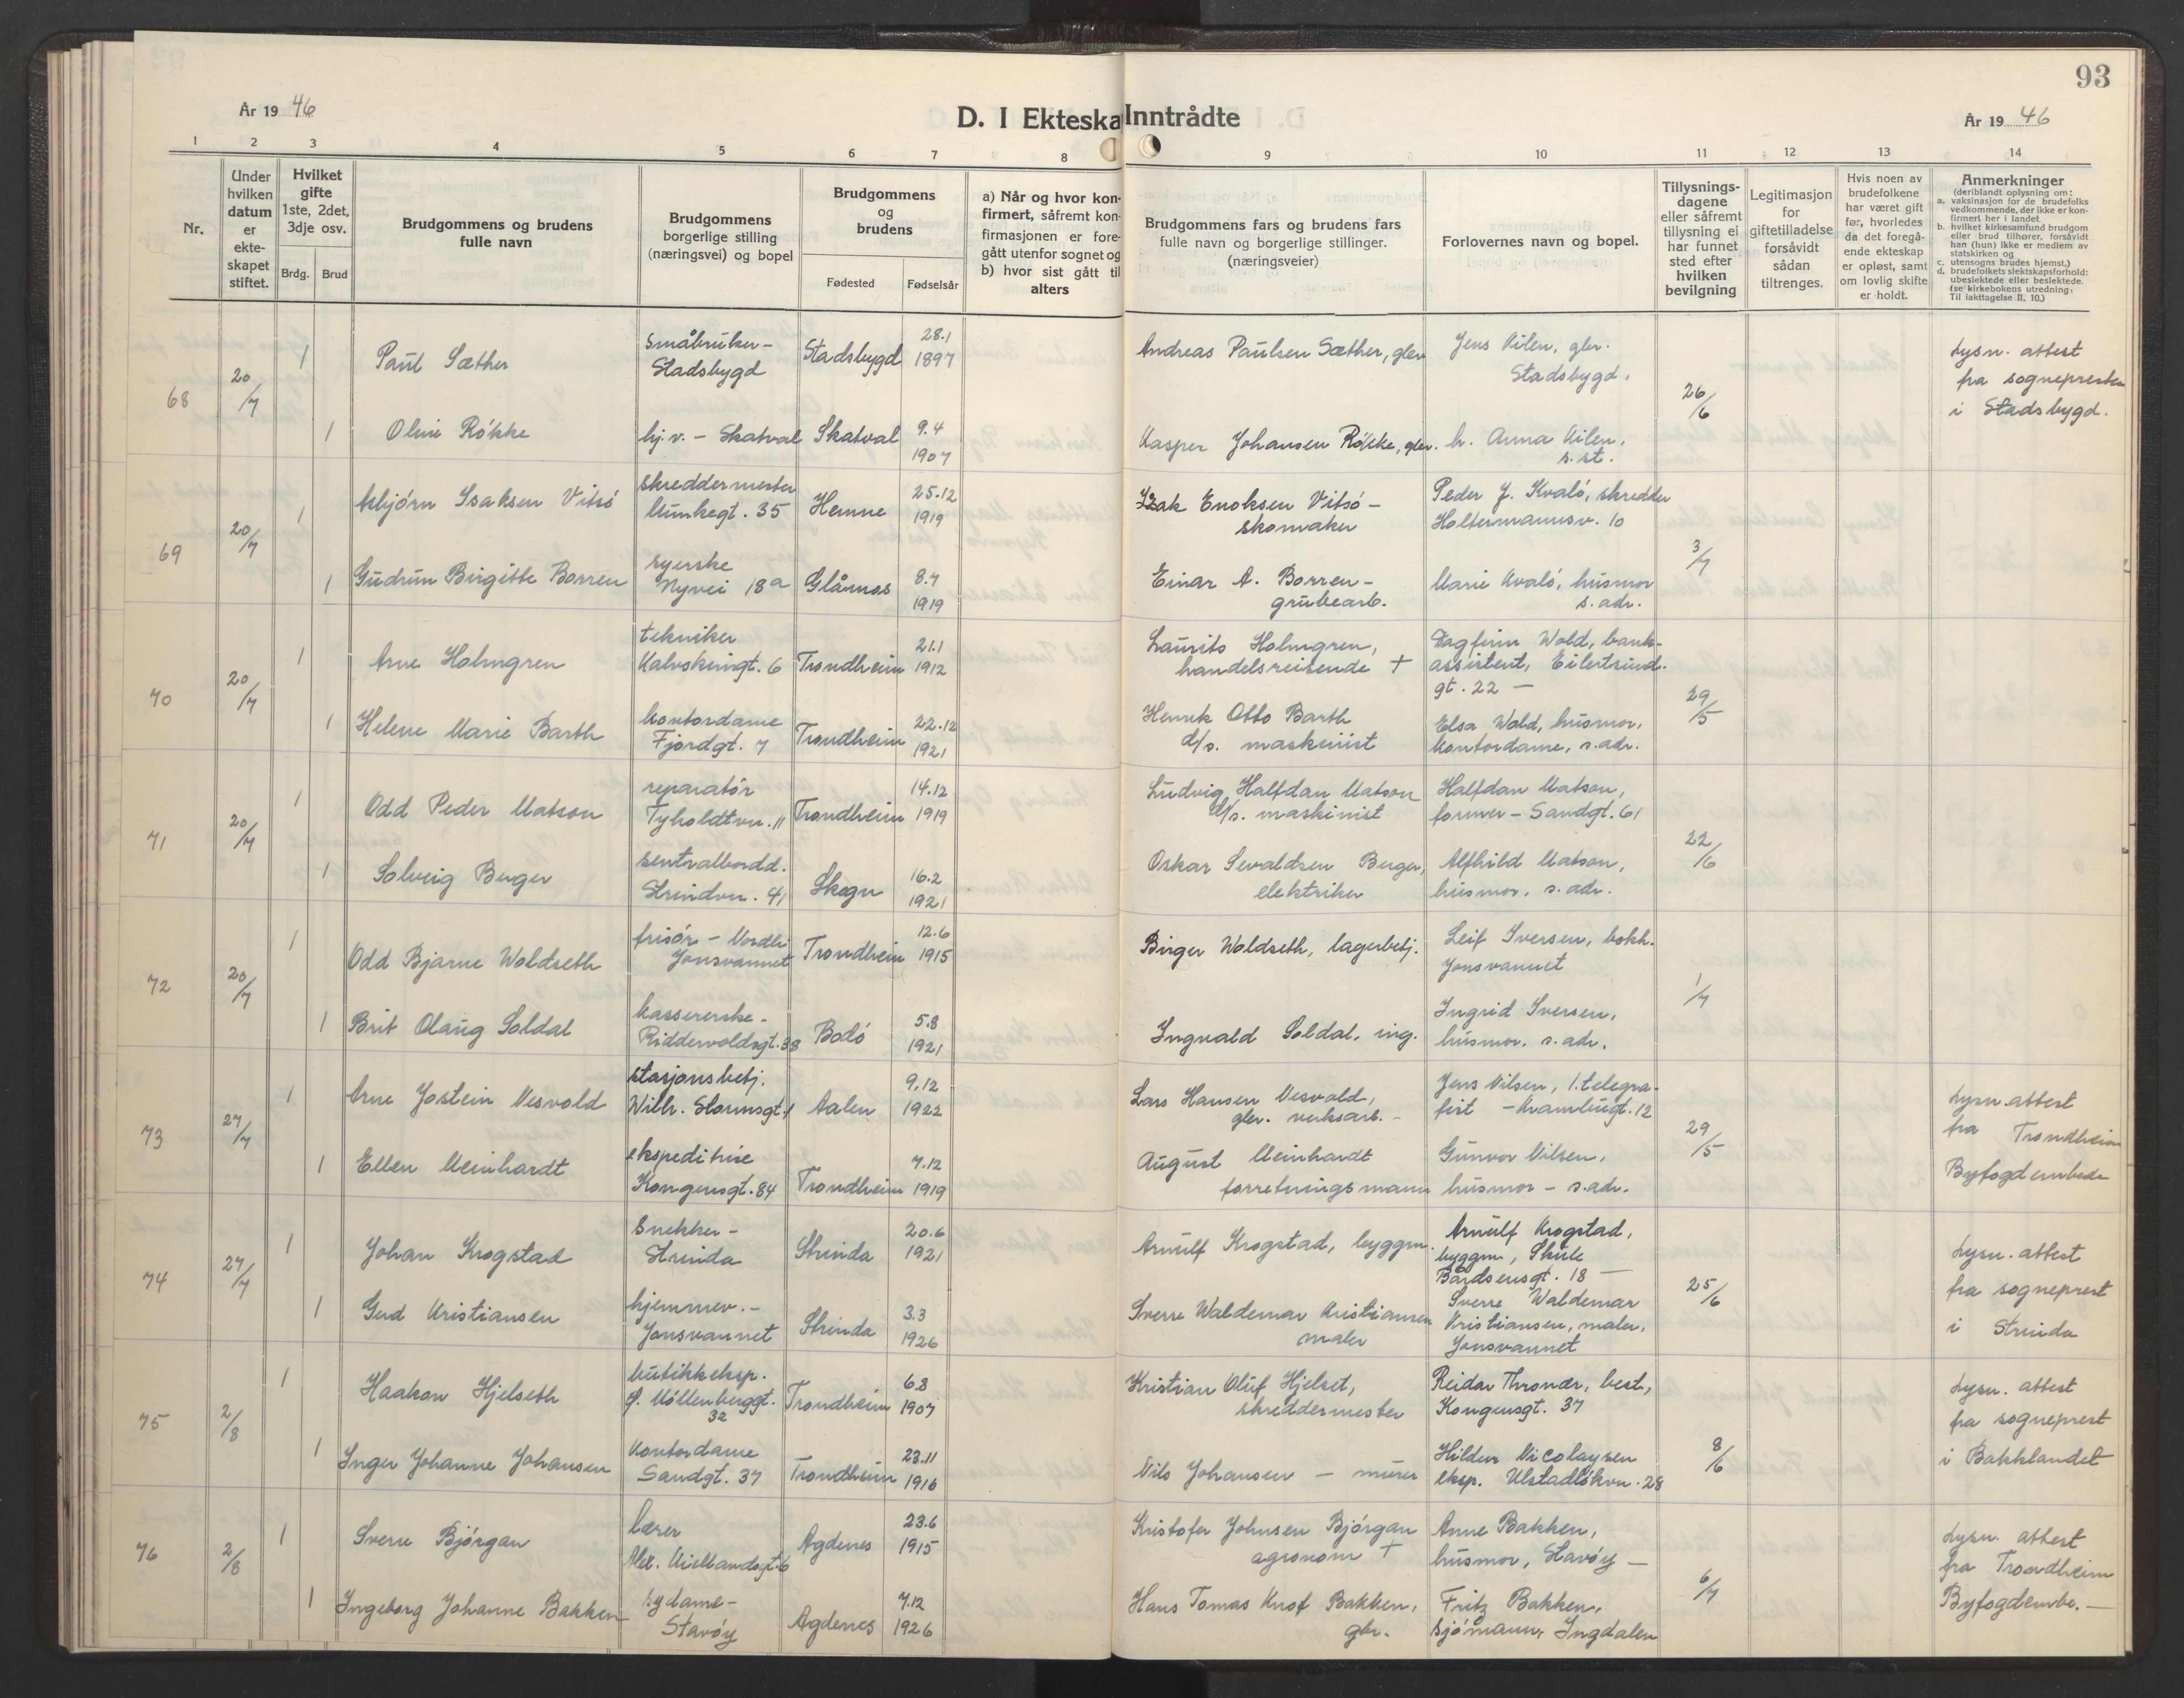 93
År 1946
D. I Ekteska Inntrådte
År 1946
1 2 3 4 5 6 7 8 9 10 11 12 13 14
Nr.
Under hvilken datum er ekteskapet stiftet.
Hvilket gifte 1ste, 2det, 3dje osv.
Brdg. Brud
Brudgommens og brudens fulle navn
Brudgommens borgerlige stilling (næringsvei) og bopel
Brudgommens og brudens
Fødested Fødselsår
a) Når og hvor konfirmert, såfremt konfirmasjonen er foregått utenfor sognet og
b) hvor sist gått til alters
Brudgommens fars og brudens fars fulle navn og borgerlige stillinger. (næringsveier)
Forlovernes navn og bopel.
Tillysningsdagene eller såfremt tillysning ei har funnet sted efter hvilken bevilgning
Legitimasjon for giftetilladelse forsåvidt sådan tiltrenges.
Hvis noen av brudefolkene har været gift før, hvorledes da det foregående ekteskap er opløst, samt om lovlig skifte er holdt.
Anmerkninger
(deriblandt oplysning om:
a. vaksinasjon for de brudefolks vedkommende, der ikke er konfirmert her i landet.
b. hvilket kirkesamfund brudgom eller brud tilhører, forsåvidt han (hun) ikke er medlem av statskirken og
c. utensogns brudes hjemst.)
d. brudefolkets slektskapsforhold: ubeslektede eller beslektede.
(se kirkebokens utredning: Til iakttagelse II, 10.)
68 20/7
1 Paul Sæther småbruker - Stadsbygd Stadsbygd 28.1 1897 Andreas Paulsen Sæther, gbr. Jens Vilen, gbr. Stadsbygd. 26/6 Lysn. attest fra sognepresten i Stadsbygd.
1 Oline Røkke hj.v. - Skatval Skatval 9.4 1907 Kasper Johansen Røkke, gbr. h. Anna Vilen, s.st.
69 20/7
1 Asbjørn Isaksen Vitsø skreddermester Munkegt. 35 Hemne 25.12 1919 Isak Enoksen Vitsø - skomaker Peder J. Kvalø, skredder Holtermannsv. 10 3/7
1 Gudrun Birgitte Borren syerske Nyvei 18a Glåmos 8.7 1919 Einar A. Borren - grubearb. Marie Kvalø, husmor s. adr.
70 20/7
1 Arne Holmgren tekniker Kalvskinngt. 6 Trondheim 21.1 1912 Laurits Holmgren, handelsreisende + Dagfinn Wold, bankassistent, Eilertsund. gt. 22 - 29/5
1 Helene Marie Barth kontordame Fjordgt. 7 Trondheim 22.12 1921 Henrik Otto Barth d/s. maskinist Elsa Wold, husmor, kontordame, s. adr.
71 20/7
1 Odd Peder Matson reparatør Tyholdtvn. 11 Trondheim 14.12 1919 Ludvig Halfdan Matson d/s. maskinist Halfdan Matson, former - Sandgt. 61 22/6
1 Solveig Berger sentralbordd. Strindvn. 41 Skogn 16.2 1921 Oskar Sevaldsen Berger, elektriker Alfhild Matson, husmor, s. adr.
72 20/7
1 Odd Bjarne Woldseth frisør - Nordli Jonsvannet Trondheim 12.6 1915 Birger Woldseth, lagerbetj. Leif Iversen, bokh. Jonsvannet 1/7
1 Brit Olaug Soldal kassererske - Riddervoldsgt. 38 Bodø 5.8 1921 Ingvald Soldal, ing. Ingrid Iversen, husmor, s. adr.
73 27/7
1 Arne Jostein Nesvold stasjonsbetj. Wilh. Stormsgt. 1 Aalen 9.12 1922 Lars Hansen Nesvold, gbr. verksarb. - Jens Nilsen, 1. telegrafist - 12 29/5 Lysn. attest fra Trondheim Byfogdembede
1 Ellen Meinhardt ekspeditrise Kongensgt. 84 Trondheim 7.12 1919 August Meinhardt forretningsmann Gunvor Nilsen, husmor - s. adr.
74 27/7
1 Johan Krogstad Snekker - Strinda Strinda 20.6 1921 Arnulf Krogstad, byggm. Arnulf Krogstad, byggm, Skule Bårdsensgt. 18 - 25/6 Lysn. attest fra sogneprest i Strinda
1 Gerd Kristiansen hjemmev. - Jonsvannet Strinda 3.3 1926 Sverre Waldemar Kristiansen maler Sverre Waldemar Kristiansen, maler, Jonsvannet
75 2/8
1 Haakon Hjelseth butikkeksp. Ø. Møllenberggt. 32 Trondheim 6.8 1907 Kristian Oluf Hjelset, skreddermester Reidar Thronds, best, Kongensgt. 37 8/6 Lysn. attest fra sogneprest i Bakklandet
1 Inger Johanne Johansen Kontordame Sandgt. 37 Trondheim 23.11 1916 Nils Johansen - murer Hildur Nicolaysen eksp. Ulstadløkvn. 28
76 2/8
1 Sverre Bjørgan lærer Alex. Kiellandsgt. 6 Agdenes 23.6 1915 Kristofer Johnsen Bjørgan agronom + Anne Bakken, husmor, Stavøy - 6/7 Lysn. attest fra Trondheim Byfogdembe. -
1 Ingeborg Johanne Bakken sydame - Stavøy Agdenes 7.12 1926 Hans Tomas Knof Bakken, gbr. Fritz Bakken, sjømann, Ingdalen